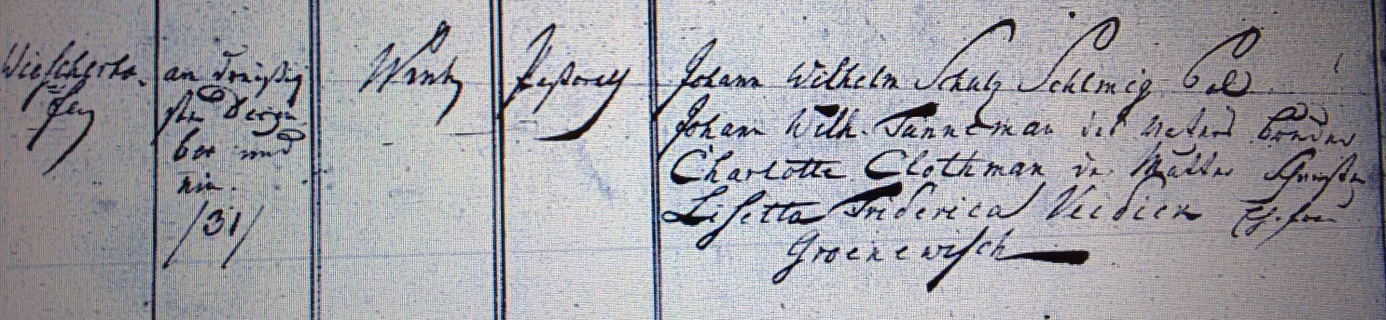 Wiescherho-
fen
an dreißig
sten Dezem
ber und
ein.
/31/
Wentz
Pastorey
Johann Wilhelm Schulz
Johann Wilh. Tanneman des Vaters Bruder
Charlotte Clothman der Mutter Schwester
Lisetta Friderica Ehefrau
Groenewisch